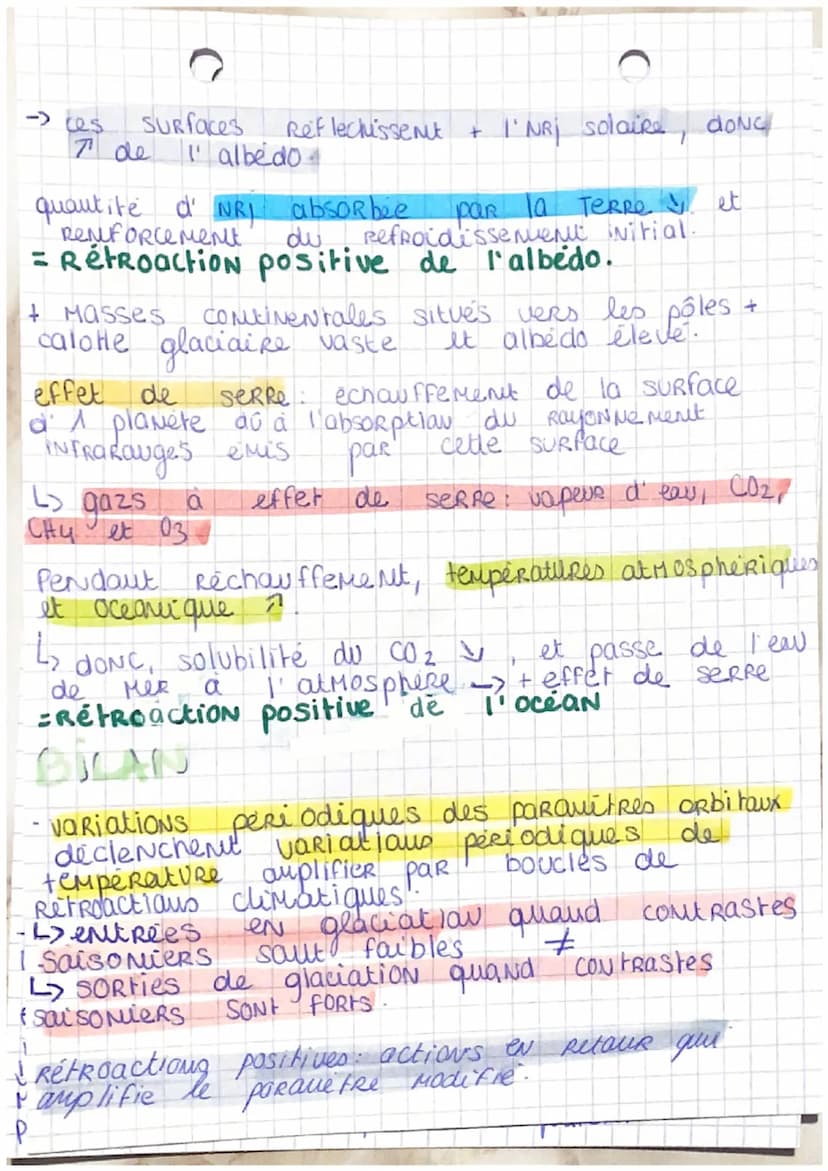 -> ces surfaces réfléchissent + l'NRj solaire, donc
↗ de l'albédo.
quantité d'NRj absorbée par la Terre ↘ et
renforcement du refroidissement initial.
= Rétroaction positive de l'albédo.
+ Masses continentales situés vers les pôles +
calotte glaciaire vaste et albédo élevé.
effet de serre : echauffement de la surface
d'1 planète dû à l'absorption du rayonnement
infrarouges émis par cette surface
↳ gazs à effet de serre : vapeur d'eau, CO2,
CH4 et O3
Pendant réchauffement, températures atmosphériques
et oceanique ↗.
↳ donc, solubilité du CO2 ↘, et passe de l'eau
de mer à l'atmosphère -> + effet de serre
= Rétroaction positive de l'océan
BILAN
- variations périodiques des paramètres orbitaux
déclenchent variations périodiques de
température amplifier par boucles de
rétroactions climatiques.
- ↳ entrées en glaciation quand contrastes
saisoniers sont faibles ≠
↳ sorties de glaciation quand contrastes
saisoniers sont forts.
rétroactions positives : actions en retour qui
amplifie le paramètre modifié.